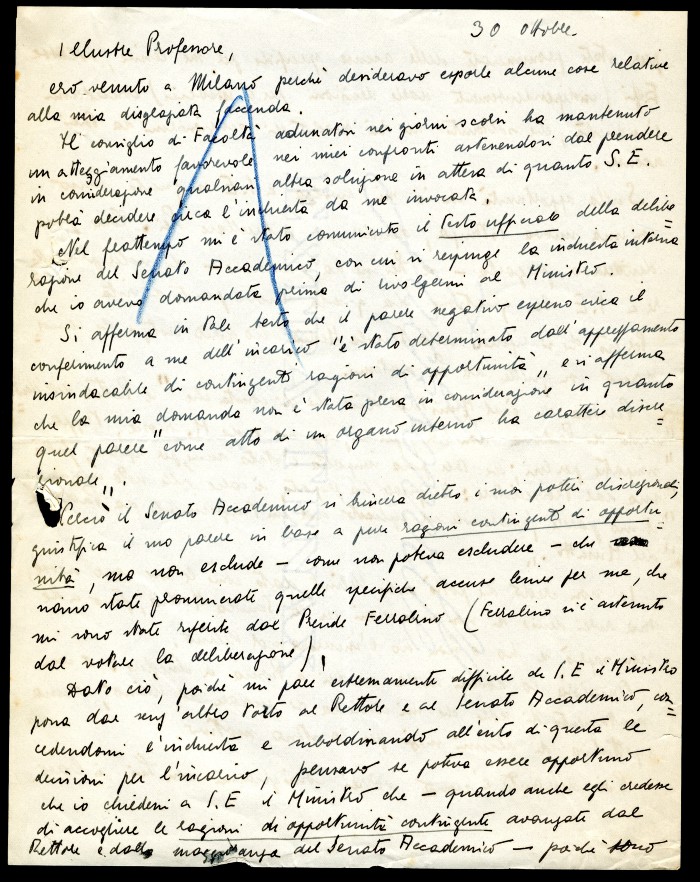 30 ottobre.
Illustre Professore,
ero venuto a Milano perchè desideravo esporle alcune cose relative
alla mia disgraziata faccenda.
Il consiglio di Facoltà adunatosi nei giorni scorsi ha mantenuto
un atteggiamento favorevole nei miei confronti astenendosi dal prendere
in considerazione qualsiasi altra soluzione in attesa di quanto S.E.
potrà decidere circa l'inchiesta da me invocata.
Nel frattempo mi è stato comunicato il testo ufficiale della delibe=
razione del Senato Accademico, con cui si respinge la inchiesta interna
che io avevo domandata prima di rivolgermi al Ministro.
Si afferma in tale testo che il parere negativo espresso circa il
conferimento a me dell'incarico "è stato determinato dall'apprezzamento
insindacabile di contingenti ragioni di opportunità", e si afferma
che la mia domanda non è stata presa in considerazione in quanto
quel parere "come atto di un organo interno ha carattere discre=
zionale".
Perciò il Senato Accademico si trincera dietro i suoi poteri discrezionali,
giustifica il suo parere in base a pure ragioni contingenti di opportu=
nità, ma non esclude - come non poteva escludere - che
siano state pronunciate quelle specifiche accuse lesive per me, che
mi sono state riferite dal Preside Ferrabino (Ferrabino si è astenuto
dal votare la deliberazione).
Dato ciò, poichè mi pare estremamente difficile che S.E il Ministro
possa dar senz'altro torto al Rettore e al Senato Accademico, con=
cedendomi l'inchiesta e subordinando all'esito di questa le
decisioni per l'incarico, pensavo se poteva essere opportuno
che io chiedessi a S.E il Ministro che - quando anche egli credesse
di accogliere le ragioni di opportunità contingente avanzate dal
Rettore e dalla maggioranza del Senato Accademico - poichè sono